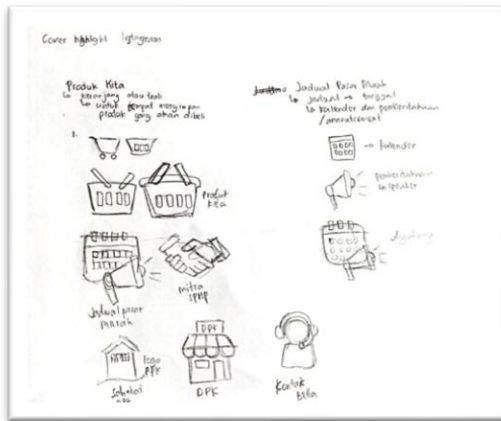 Cover highlight Instagram
Produk Kita
↳ keranjang atau troli
↳ untuk tempat menyimpan
produk yang akan dibeli
1.
Produk
Kita
Jadwal pasar
murah
mitra
logo
DPK
DPK
Kontak
Jadwal Pasar Murah
↳ jadwal → tanggal
↳ kalender dan pemberitahuan
/announcement
→ kalender
pemberitahuan
↳ speaker